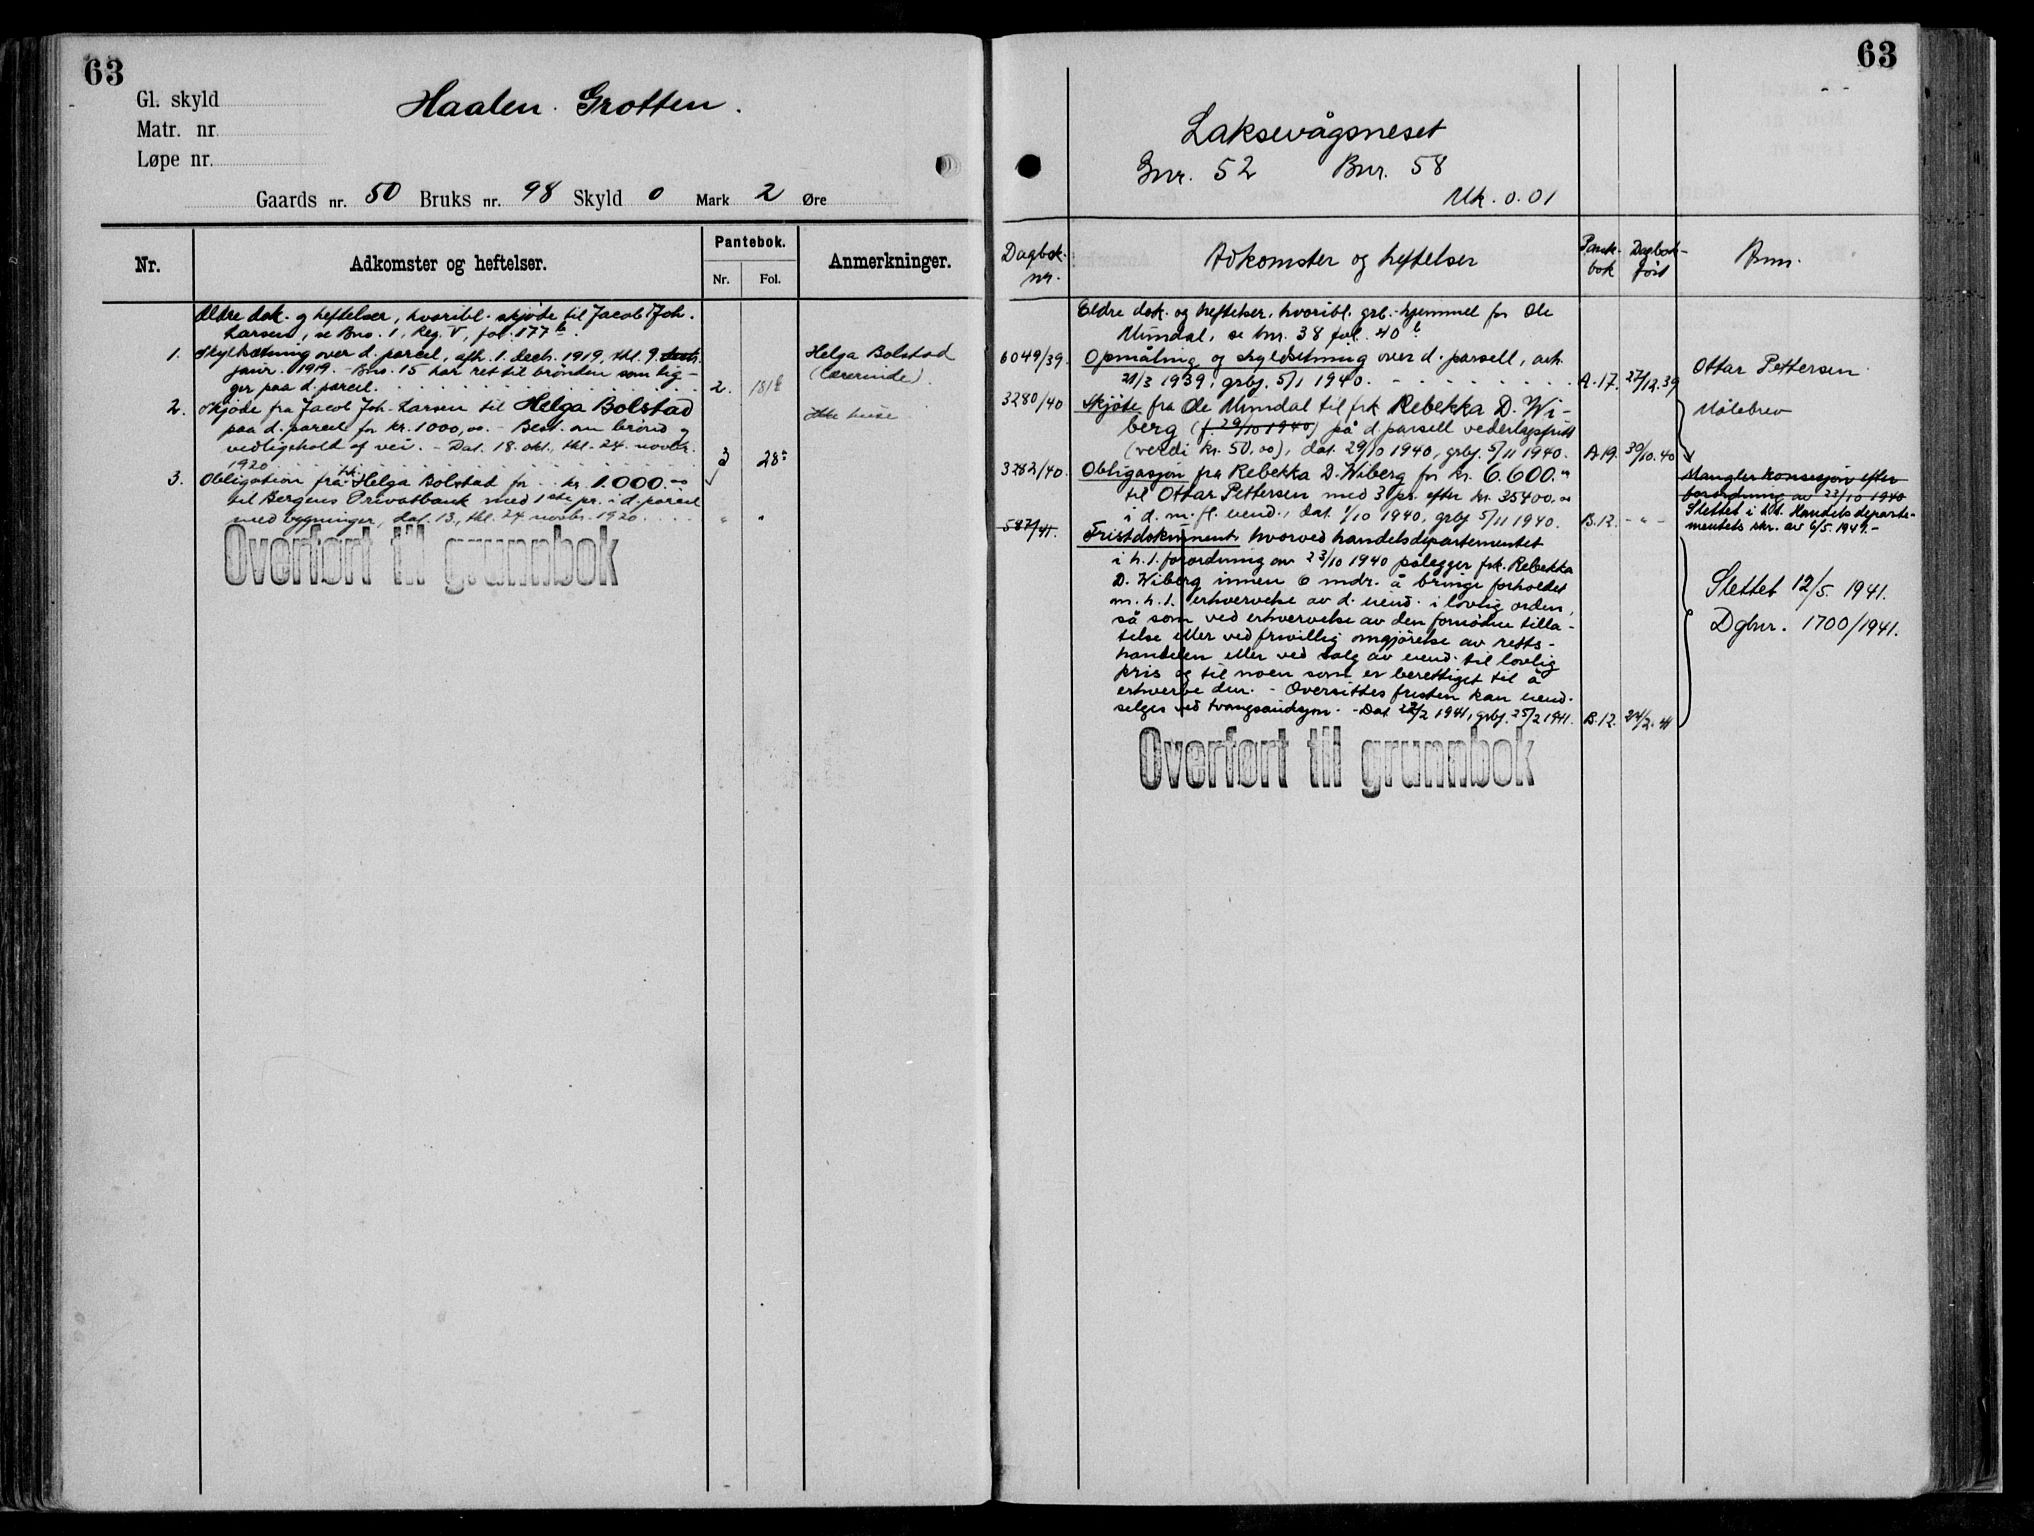 63
Gl. skyld
Matr. nr.
Løpe nr.
Haalen. Grotten.
Gaards nr. 50 Bruks nr. 98 Skyld 0 Mark 2 Øre
Nr.
Adkomster og heftelser.
Pantebok.
Nr. Fol.
Anmerkninger.
Ældre dok. og heftelser, hvoribl. skjøde til Jacob Joh.
Larsen, se Bno. 1, Reg. V, fol. 177 b.
1. Skyldsætning over d. parcel, afh. 1. decb. 1919, thl. 9.
janr. 1919. - Bno. 15 har ret til brønden som lig-
ger paa d. parcel. 2. 181 b
Helga Bolstad
(Lærerinde).
2. Skjøde fra Jacob Joh. Larsen til Helga Bolstad
paa d. parcel for kr. 1000,00. - Best. om brønd og
vedligehold af vei. - Dat. 18. okt., thl. 24. novbr.
1920 3 28 a
Ikke huse
3. Obligation fra frk. Helga Bolstad for kr. 1.000.00
til Bergens Privatbank med 1ste pr. i d. parcel
med bygninger, dat. 13., thl. 24 novbr. 1920. " "
Overført til grunnbok
63
Laksevågsneset
Gnr. 52 Bnr. 58
Mk. 0.01
Dagbok-
nr.
Adkomster og heftelser
Pante-
bok
Dagbok-
ført
Anm.
Eldre dok. og heftelser, hvoribl. grb.-hjemmel for Ole
Mundal, se bnr. 38 fol. 40 b
6049/39. Opmåling og skyldsetning over d. parsell, avh.
21/3 1939, grbf. 5/1 1940. A.17. 27/12.39
Ottar Pettersen
Målebrev
3280/40 Skjøte fra Ole Mundal til frk Rebekka D. Wi-
berg (f. 29/10 1940) på d. parsell vederlagsfritt
(verdi kr. 50,00), dat. 29/10 1940, grbf. 5/11 1940. A.19. 30/10.40
3282/40. Obligasjon fra Rebekka D. Wiberg for kr. 6.600.00
til Ottar Pettersen med 3 pr. efter kr. 35400.00
i d. m. fl. eiend., dat. 1/10 1940, grbf 5/11 1940. B.12. - " -
Mangler konsesjon efter
forordning av 23/10 1940
Slettet i h.t. Handelsdeparte-
mentets skr. av 6/5. 1941.-
587/41. Fristdokument, hvorved handelsdepartementet
i h.t. forordning av 23/10 1940 pålegger frk. Rebekka
D. Wiberg innen 6 mdr. å bringe forholdet
m.h.t. erhvervelse av d. eiend. i lovlig orden,
så som ved erhvervelse av den fornødne tilla-
telse eller ved frivillig omgjørelse av retts-
handelen eller ved salg av eiend. til lovlig
pris og til noen som er berettiget til å
erhverve den. - Oversittes fristen kan eiend.
selges ved tvangsauksjon. - Dat 22/2 1941, grbf. 25/2 1941. B.12. 24/2.41
Slettet 12/5. 1941.
Dgbnr. 1700/1941.
Overført til grunnbok